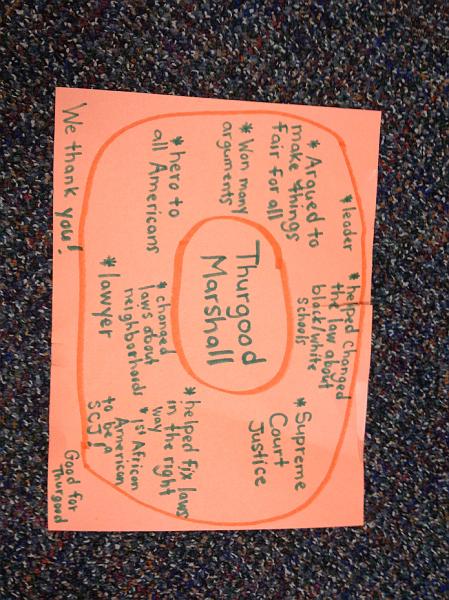 * leader
* Argued to
make things
fair for all
* Won many
arguments
* hero to
all Americans
* helped changed
the law about
black/white
schools
Thurgood
Marshall
* changed
laws about
neighborhoods
* lawyer
* Supreme
Court
Justice
* helped fix laws
in the right
way
* 1st African
American
to be a
SCJ!
We thank you!
Good for
Thurgood